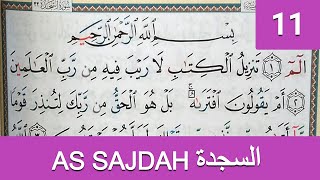 11
بِسْمِ اللَّهِ الرَّحْمَٰنِ الرَّحِيمِ
الٓمٓ ۝١ تَنزِيلُ الْكِتَابِ لَا رَيْبَ فِيهِ مِن رَّبِّ الْعَالَمِينَ
۝٢ أَمْ يَقُولُونَ افْتَرَاهُ ۚ بَلْ هُوَ الْحَقُّ مِن رَّبِّكَ لِتُنذِرَ قَوْمًا
AS SAJDAH السجدة